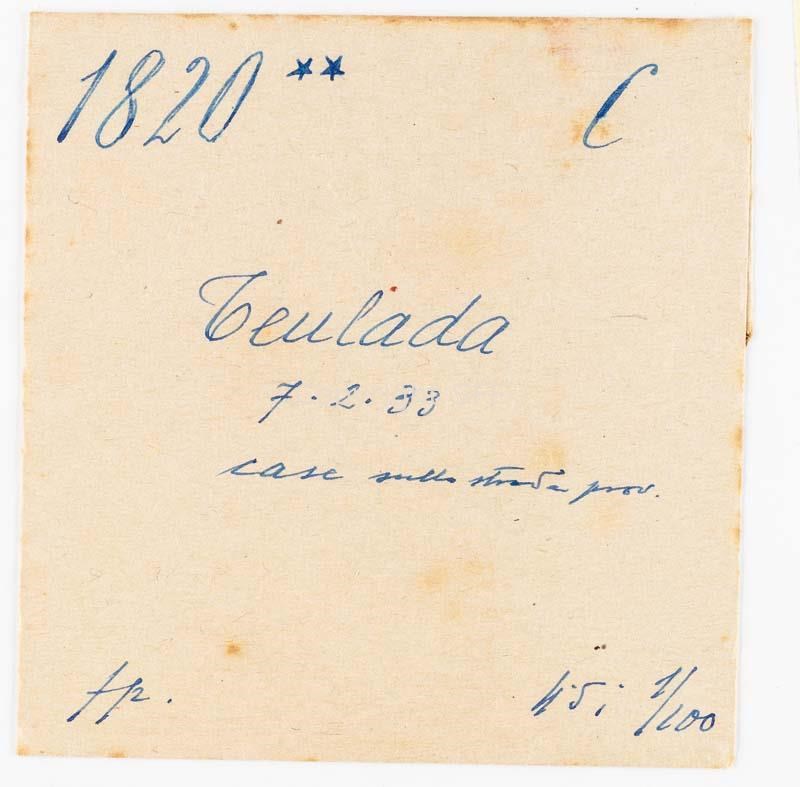 1820 ** C
Teulada
7.2.33
case sulla strada prov.
fp.
4.5; 1/100